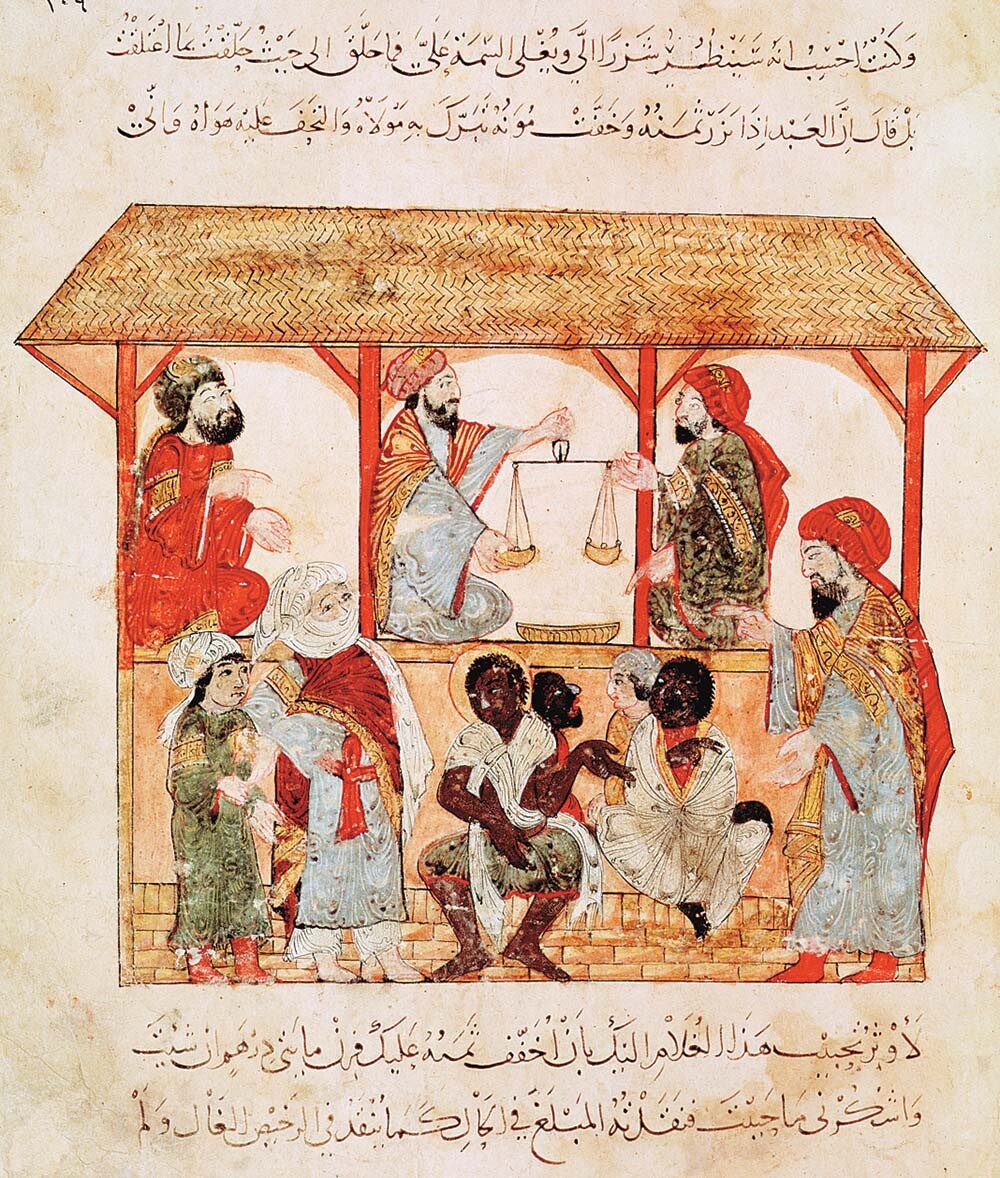 ١٠٩
وَكُنْتُ اَحْسِبُ انَهُ سَيَنْظُرُ شَزْرًا اِلَيَّ وَيُغْلِى السِّمَةَ عَلَيَّ فَمَا حَلَّقَ الى حَيْثُ حَلَّقْتُ وَلَا اعْتَلَقَ بِمَا اعْتَلَقْتُ
بَلْ قَالَ اِنَّ العَبْدَ اِذَا نَزُرَ ثَمَنُهُ وَخَفَّتْ مُوَنُهُ تَبَرَّكَ بِهِ مَوْلَاهُ وَالْتَحَفَ عَلَيْهِ هَوَاهُ وَاِنِّي
لَأُوثِرُ تَحْبِيبَ هَذَا الغُلَامِ اِلَيْكَ بِاَنْ اُخَفِّفَ ثَمَنَهُ عَلَيْكَ فَزِنْ مِايَتَيْ دِرْهَمٍ اِنْ شِيْتَ
وَاشْكُرْنِى مَا حَيِيْتَ فَنَقَدْتُهُ المَبْلَغَ فِي الحَالِ كَمَا يُنْقَدُ فِي الرَّخِيْصِ الغَالِ وَلَمْ